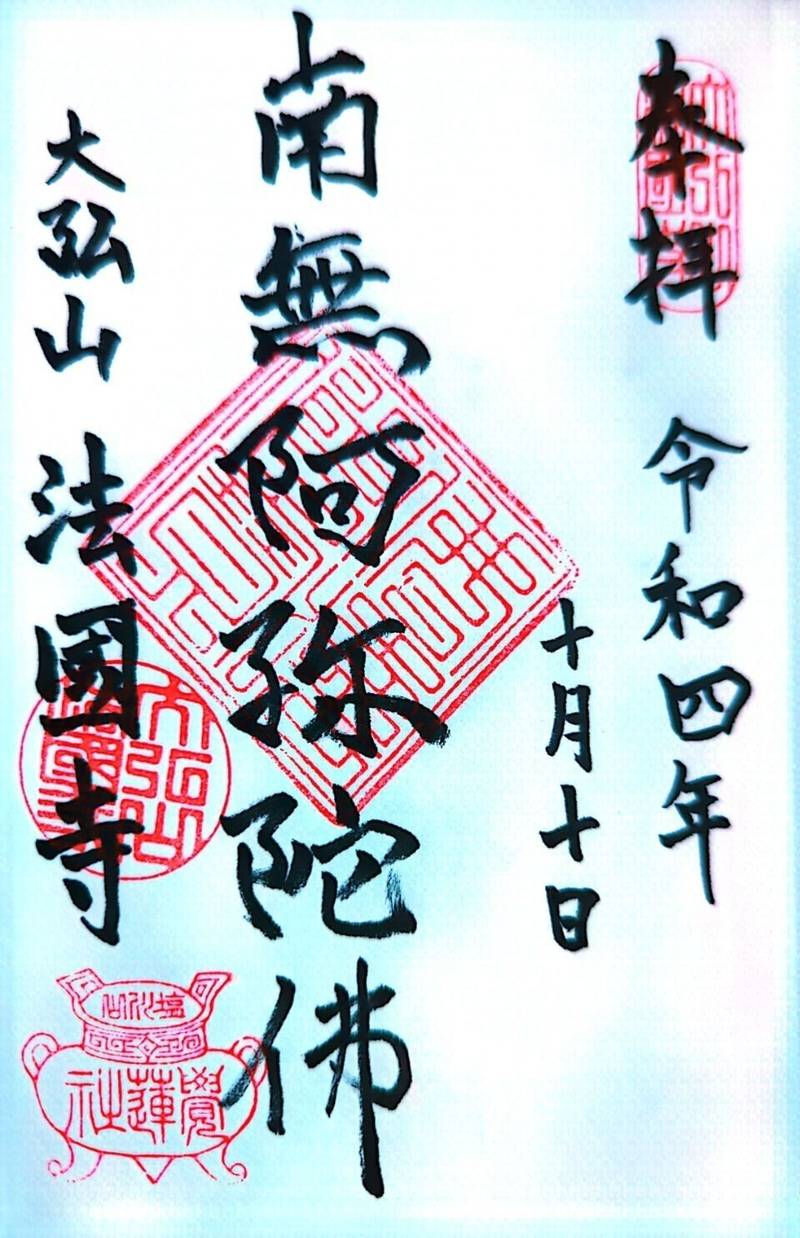 奉拝 令和四年
十月十日
南無阿弥陀佛
大弘山 法國寺
大弘山
覺蓮社